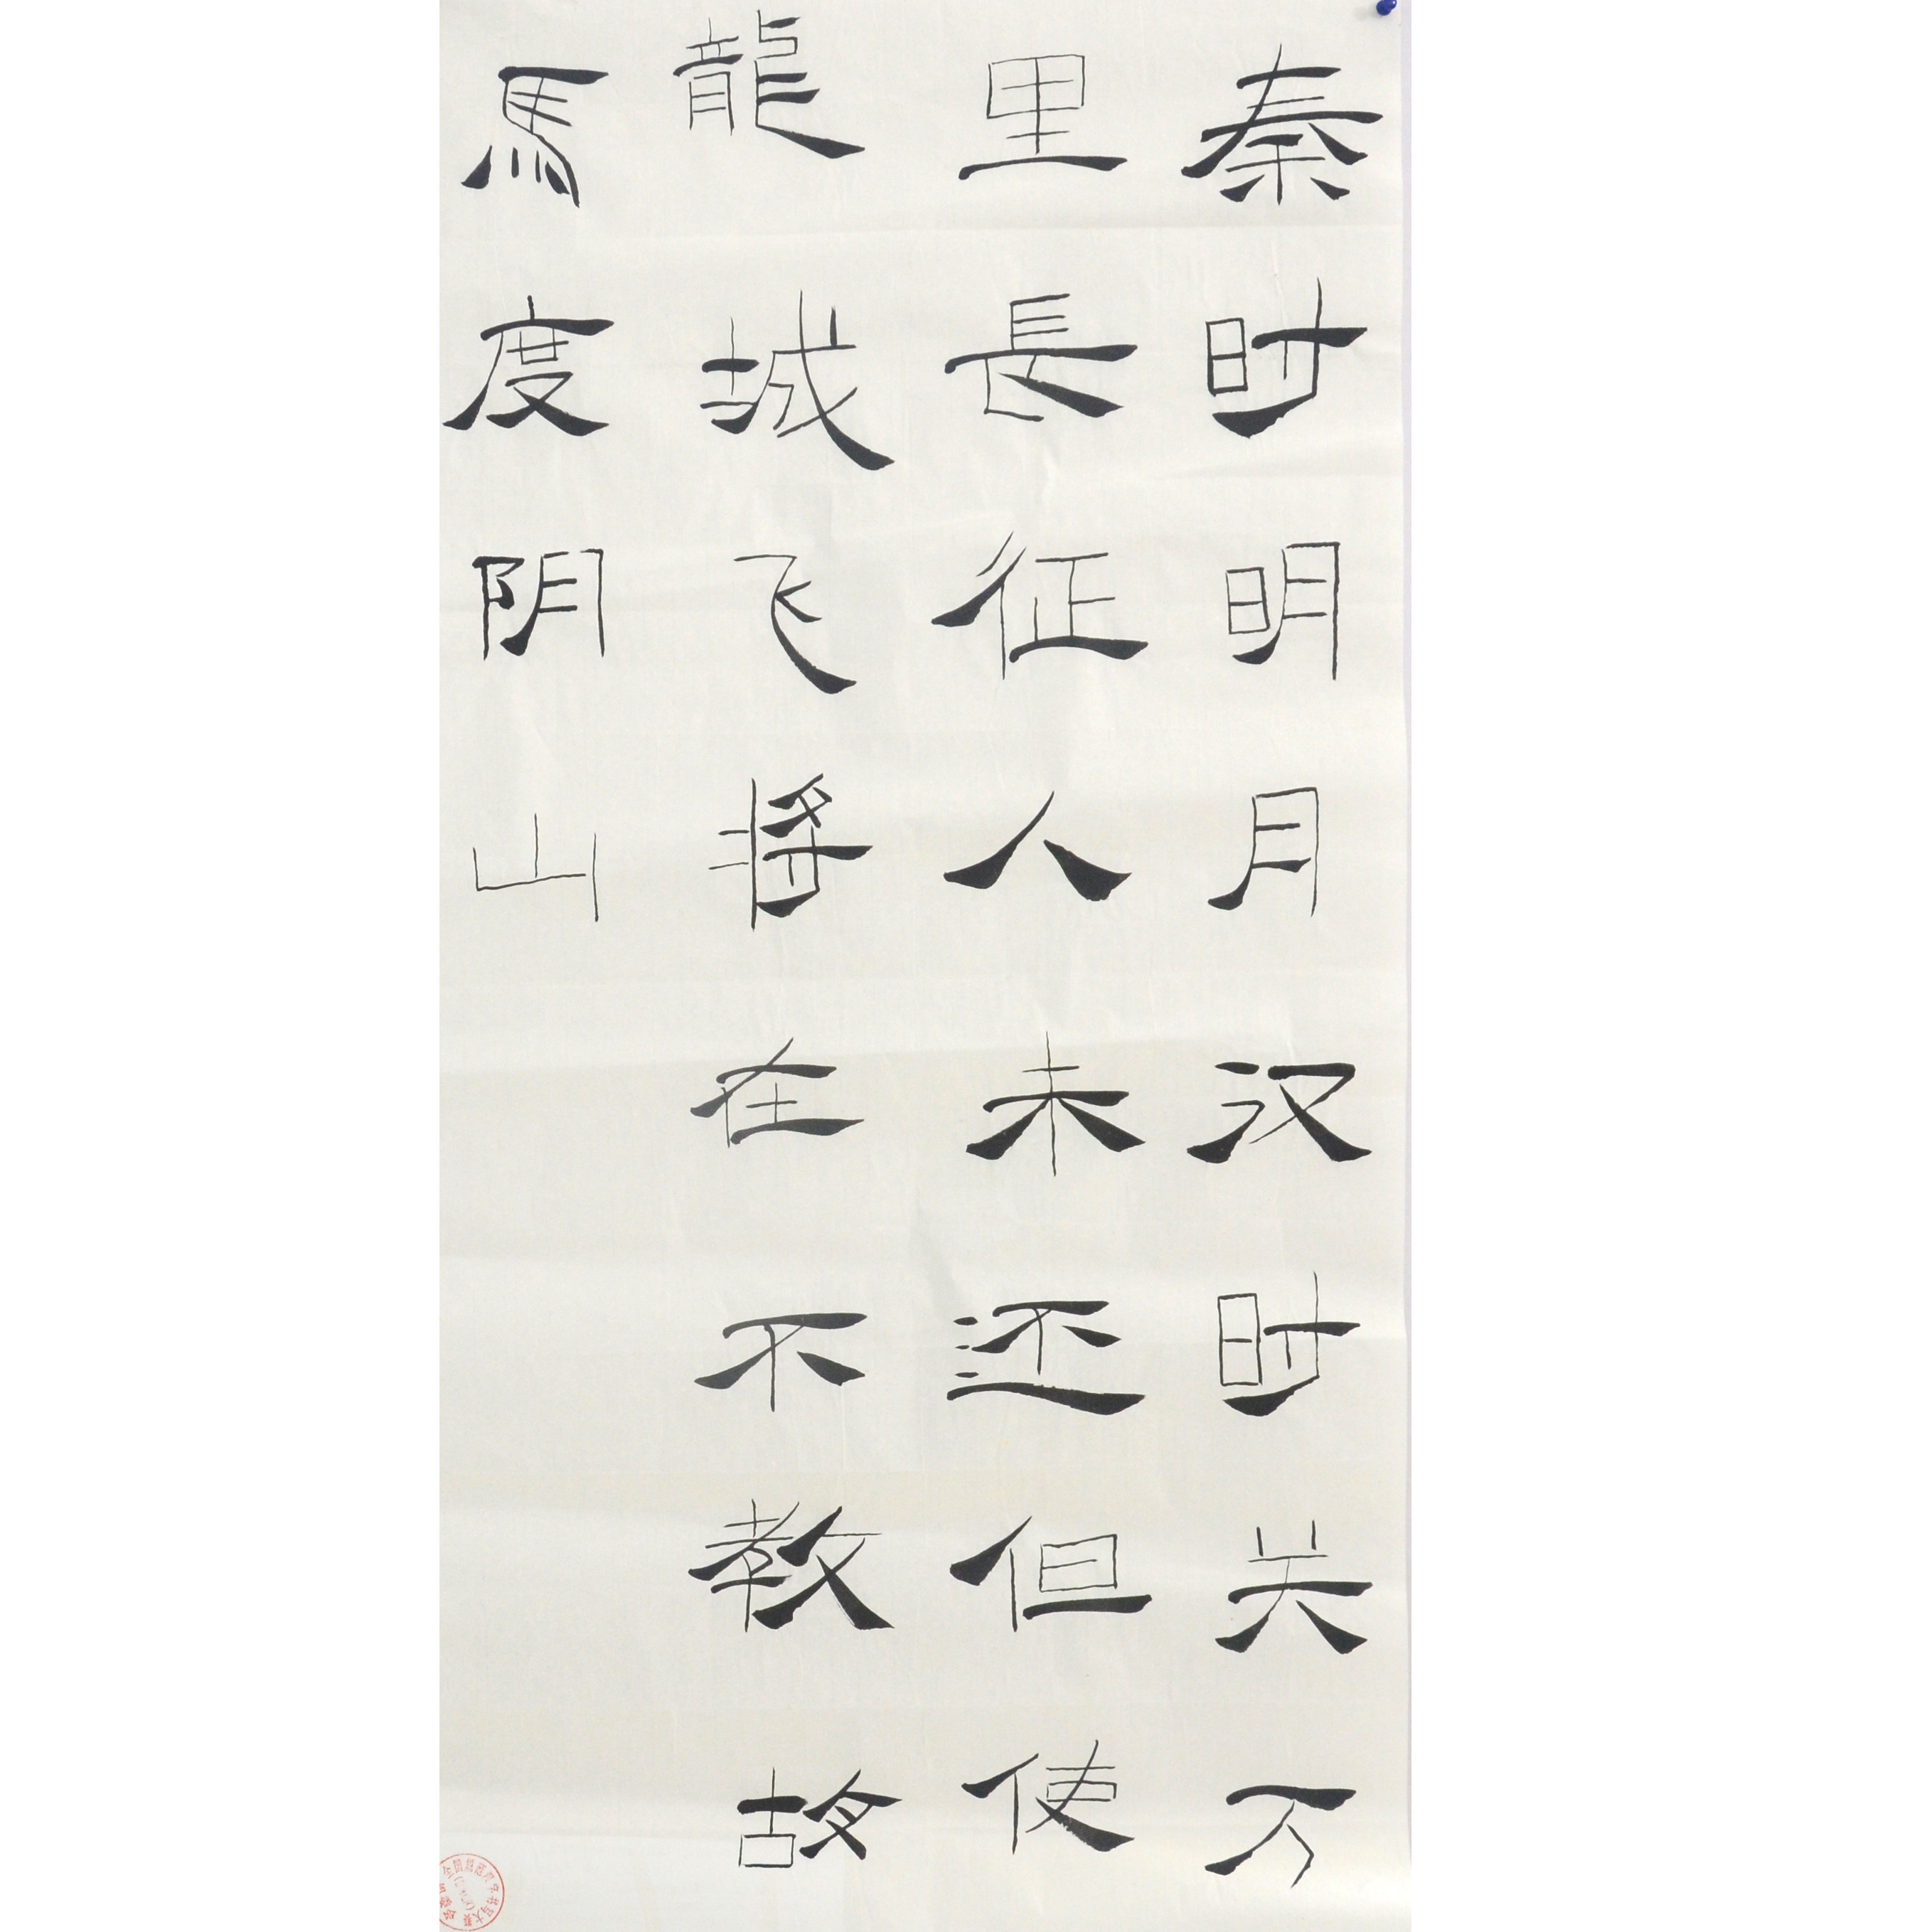 秦时明月汉时关万
里長征人未还但使
龍城飞将在不教故
馬度阴山